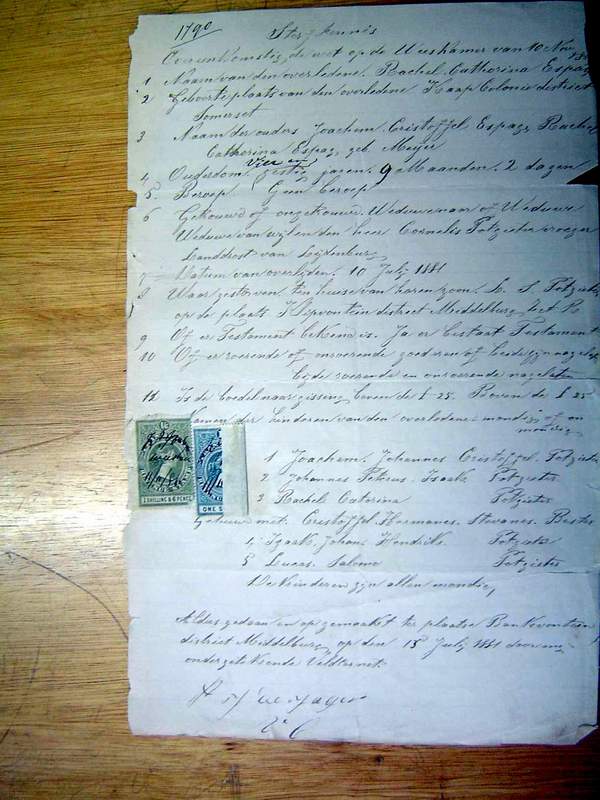 1790
Sterfkennis
Overeenkomstig de wet op de Weeskamer van 10 Nov
1 Naam van den overledene. Rachel Catharina Espag
2 Geboorteplaats van den overledene Kaap Colonie district
Somerset
3 Naam der ouders Joachem Cristoffel Espag, Rachel
Catharina Espag geb Meijer
vier en
4 Ouderdom. jaren. 9 Maanden. 2 dagen
5. Beroep Geen beroep
6 Gehouwd of ongehouwd. Weduwenaar of Weduwe
Weduwe van wijlen den heer Cornelis Potgieter vroeger
Landdrost van Lijdenburg
7 Datum van overlijden. 10 Julij 1881
8 Waar gestorven. ten huise van haren zoon. Potgieter
op de plaats Klipfontein district Middelburg
9 Of er Testament bekend is. Ja er bestaat Testament
10 Of er roerende of onroerende goederen of beide zijn nagelaten
beide roerende en onroerende nagelaten
Is de boedel naar gissing boven de £ 25. Boven de £ 25
Namen der kinderen van den overledene mondig of on
mondig
1 Joachem. Johannes Cristoffel. Potgieter
2 Johannes Petrus Isaak Potgieter
3 Rachel Catarina Potgieter
Gehuwd met. Cristoffel. Hermanus. Stevanes. Bester
4 Izaak Johan. Hendrik Potgieter
5 Lucas. Salomo Potgieter
De kinderen zijn allen mondig
1 SHILLING & 6 PENCE
ONE S
Aldus gedaan en op gemaakt ter plaatse Bankfontein
district Middelburg op den 15 Julij 1881 door mij
ondergetekende Veldkornet